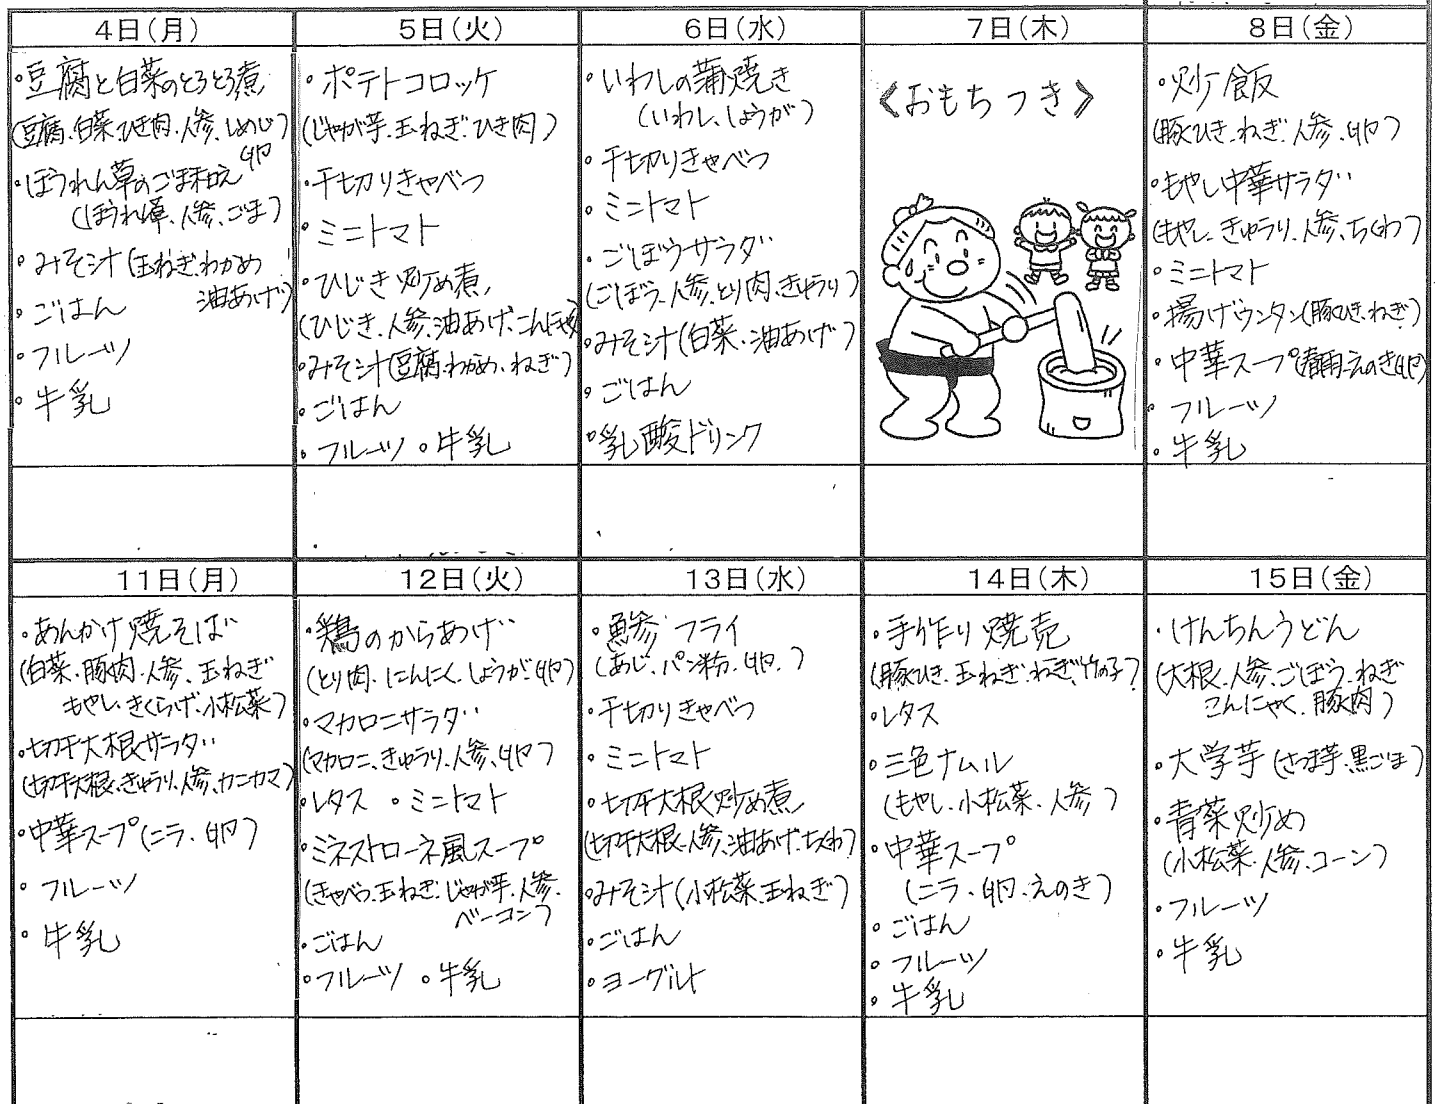 4日(月)
・豆腐と白菜のとろとろ煮
(豆腐、白菜、ひき肉、人参、しめじ)
卵
・ほうれん草のごま和え
(ほうれん草、人参、ごま)
・みそ汁(玉ねぎ、わかめ
油あげ)
・ごはん
・フルーツ
・牛乳
5日(火)
・ポテトコロッケ
(じゃが芋、玉ねぎ、ひき肉)
・千切りきゃべつ
・ミニトマト
・ひじき炒め煮
(ひじき、人参、油あげ、こんにゃく)
・みそ汁(豆腐、わかめ、ねぎ)
・ごはん
・フルーツ ・牛乳
6日(水)
・いわしの蒲焼き
(いわし、しょうが)
・千切りきゃべつ
・ミニトマト
・ごぼうサラダ
(ごぼう、人参、とり肉、きゅうり)
・みそ汁(白菜、油あげ)
・ごはん
・乳酸ドリンク
7日(木)
《おもちつき》
8日(金)
・炒飯
(豚ひき、ねぎ、人参、卵)
・もやし中華サラダ
(もやし、きゅうり、人参、ちくわ)
・ミニトマト
・揚げワンタン(豚ひき、ねぎ)
・中華スープ(春雨、えのき、卵)
・フルーツ
・牛乳
11日(月)
・あんかけ焼そば
(白菜、豚肉、人参、玉ねぎ
もやし、きくらげ、小松菜)
・切干大根サラダ
(切干大根、きゅうり、人参、カニカマ)
・中華スープ(ニラ、卵)
・フルーツ
・牛乳
12日(火)
・鶏のからあげ
(とり肉、にんにく、しょうが、卵)
・マカロニサラダ
(マカロニ、きゅうり、人参、卵)
・レタス ・ミニトマト
・ミネストローネ風スープ
(きゃべつ、玉ねぎ、じゃが芋、人参、
ベーコン)
・ごはん
・フルーツ ・牛乳
13日(水)
・鯵フライ
(あじ、パン粉、卵、)
・千切りきゃべつ
・ミニトマト
・切干大根炒め煮
(切干大根、人参、油あげ、ちくわ)
・みそ汁(小松菜、玉ねぎ)
・ごはん
・ヨーグルト
14日(木)
・手作り焼売
(豚ひき、玉ねぎ、ねぎ、竹の子)
・レタス
・三色ナムル
(もやし、小松菜、人参)
・中華スープ
(ニラ、卵、えのき)
・ごはん
・フルーツ
・牛乳
15日(金)
・けんちんうどん
(大根、人参、ごぼう、ねぎ
こんにゃく、豚肉)
・大学芋(さつま芋、黒ごま)
・青菜炒め
(小松菜、人参、コーン)
・フルーツ
・牛乳